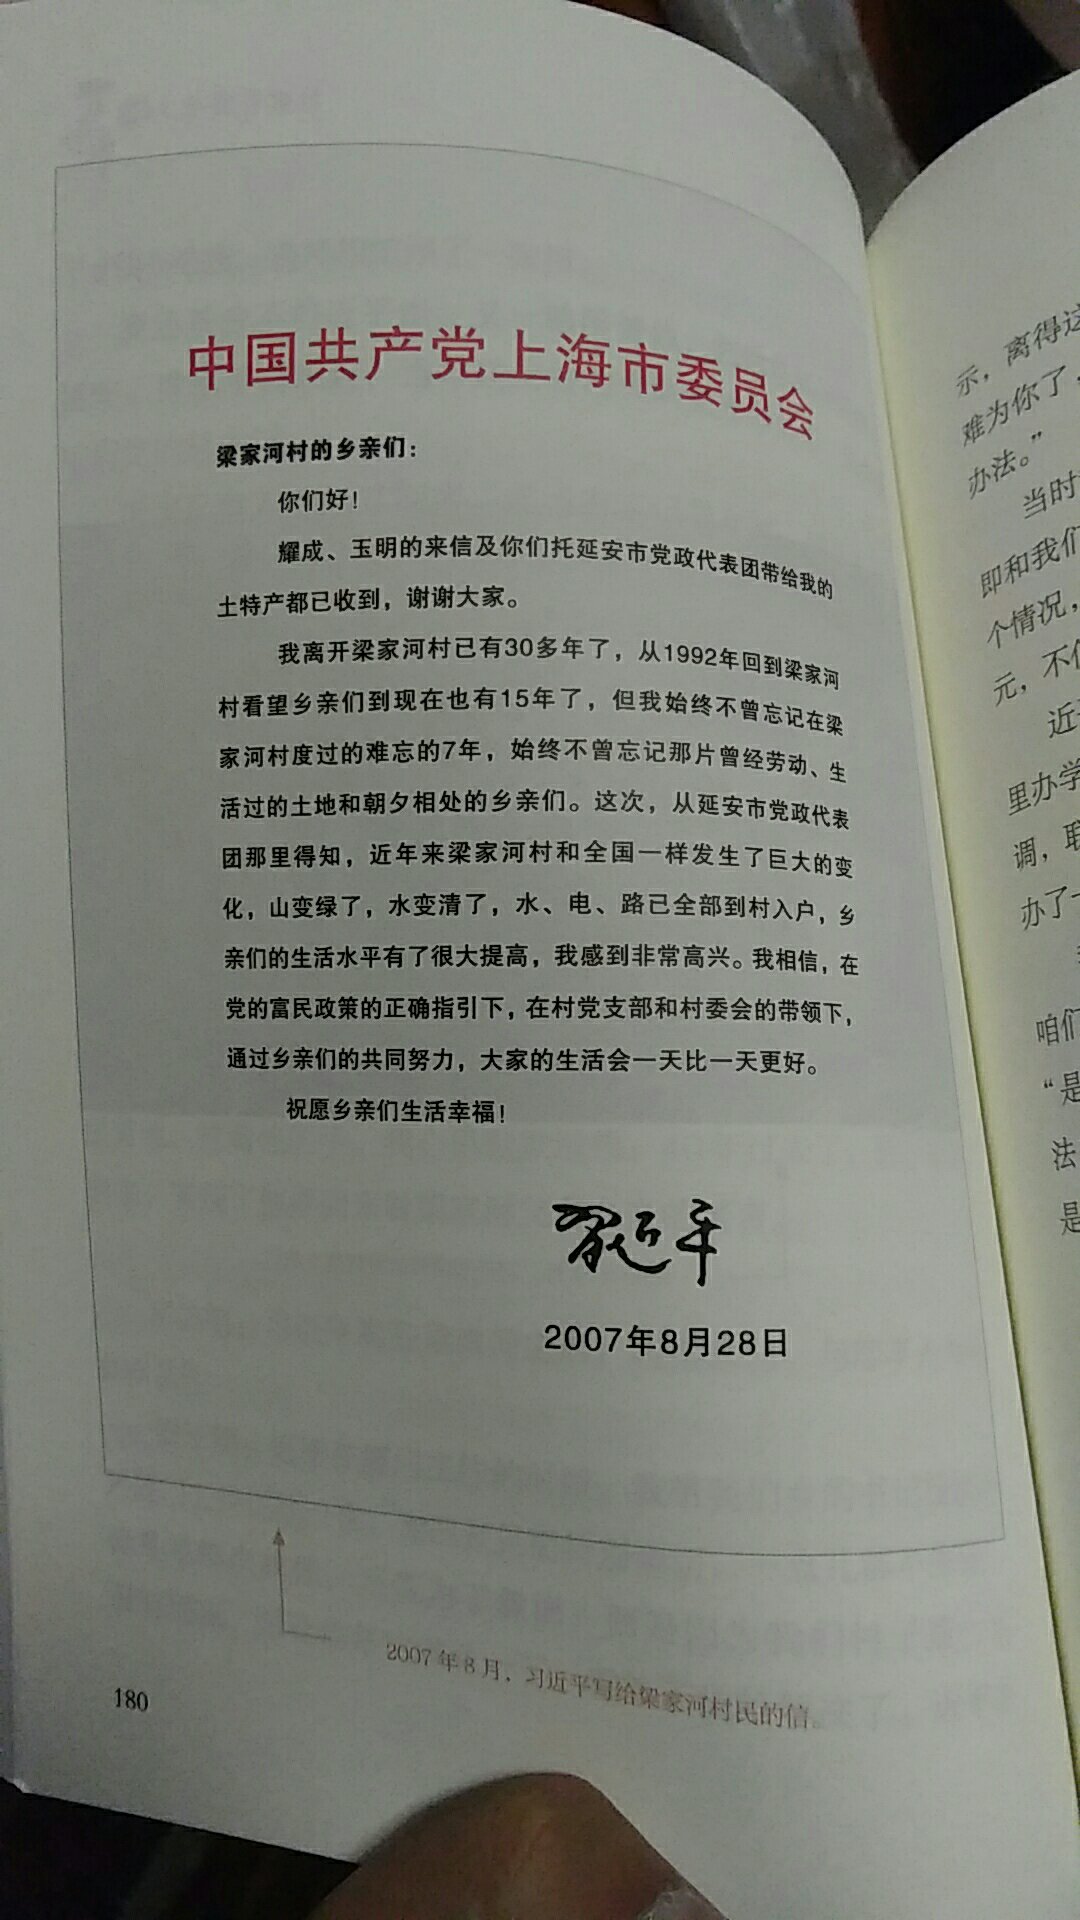 中国共产党上海市委员会
梁家河村的乡亲们：
你们好！
耀成、玉明的来信及你们托延安市党政代表团带给我的
土特产都已收到，谢谢大家。
我离开梁家河村已有30多年了，从1992年回到梁家河
村看望乡亲们到现在也有15年了，但我始终不曾忘记在梁
家河村度过的难忘的7年，始终不曾忘记那片曾经劳动、生
活过的土地和朝夕相处的乡亲们。这次，从延安市党政代表
团那里得知，近年来梁家河村和全国一样发生了巨大的变
化，山变绿了，水变清了，水、电、路已全部到村入户，乡
亲们的生活水平有了很大提高，我感到非常高兴。我相信，在
党的富民政策的正确指引下，在村党支部和村委会的带领下，
通过乡亲们的共同努力，大家的生活会一天比一天更好。
祝愿乡亲们生活幸福！
习近平
2007年8月28日
2007年8月，习近平写给梁家河村民的信。
180
示，离得这
难为你了，
办法。”
当时
即和我们
个情况，
元，不
近
里办学
调，联
办了一
咱们
“是
法
是